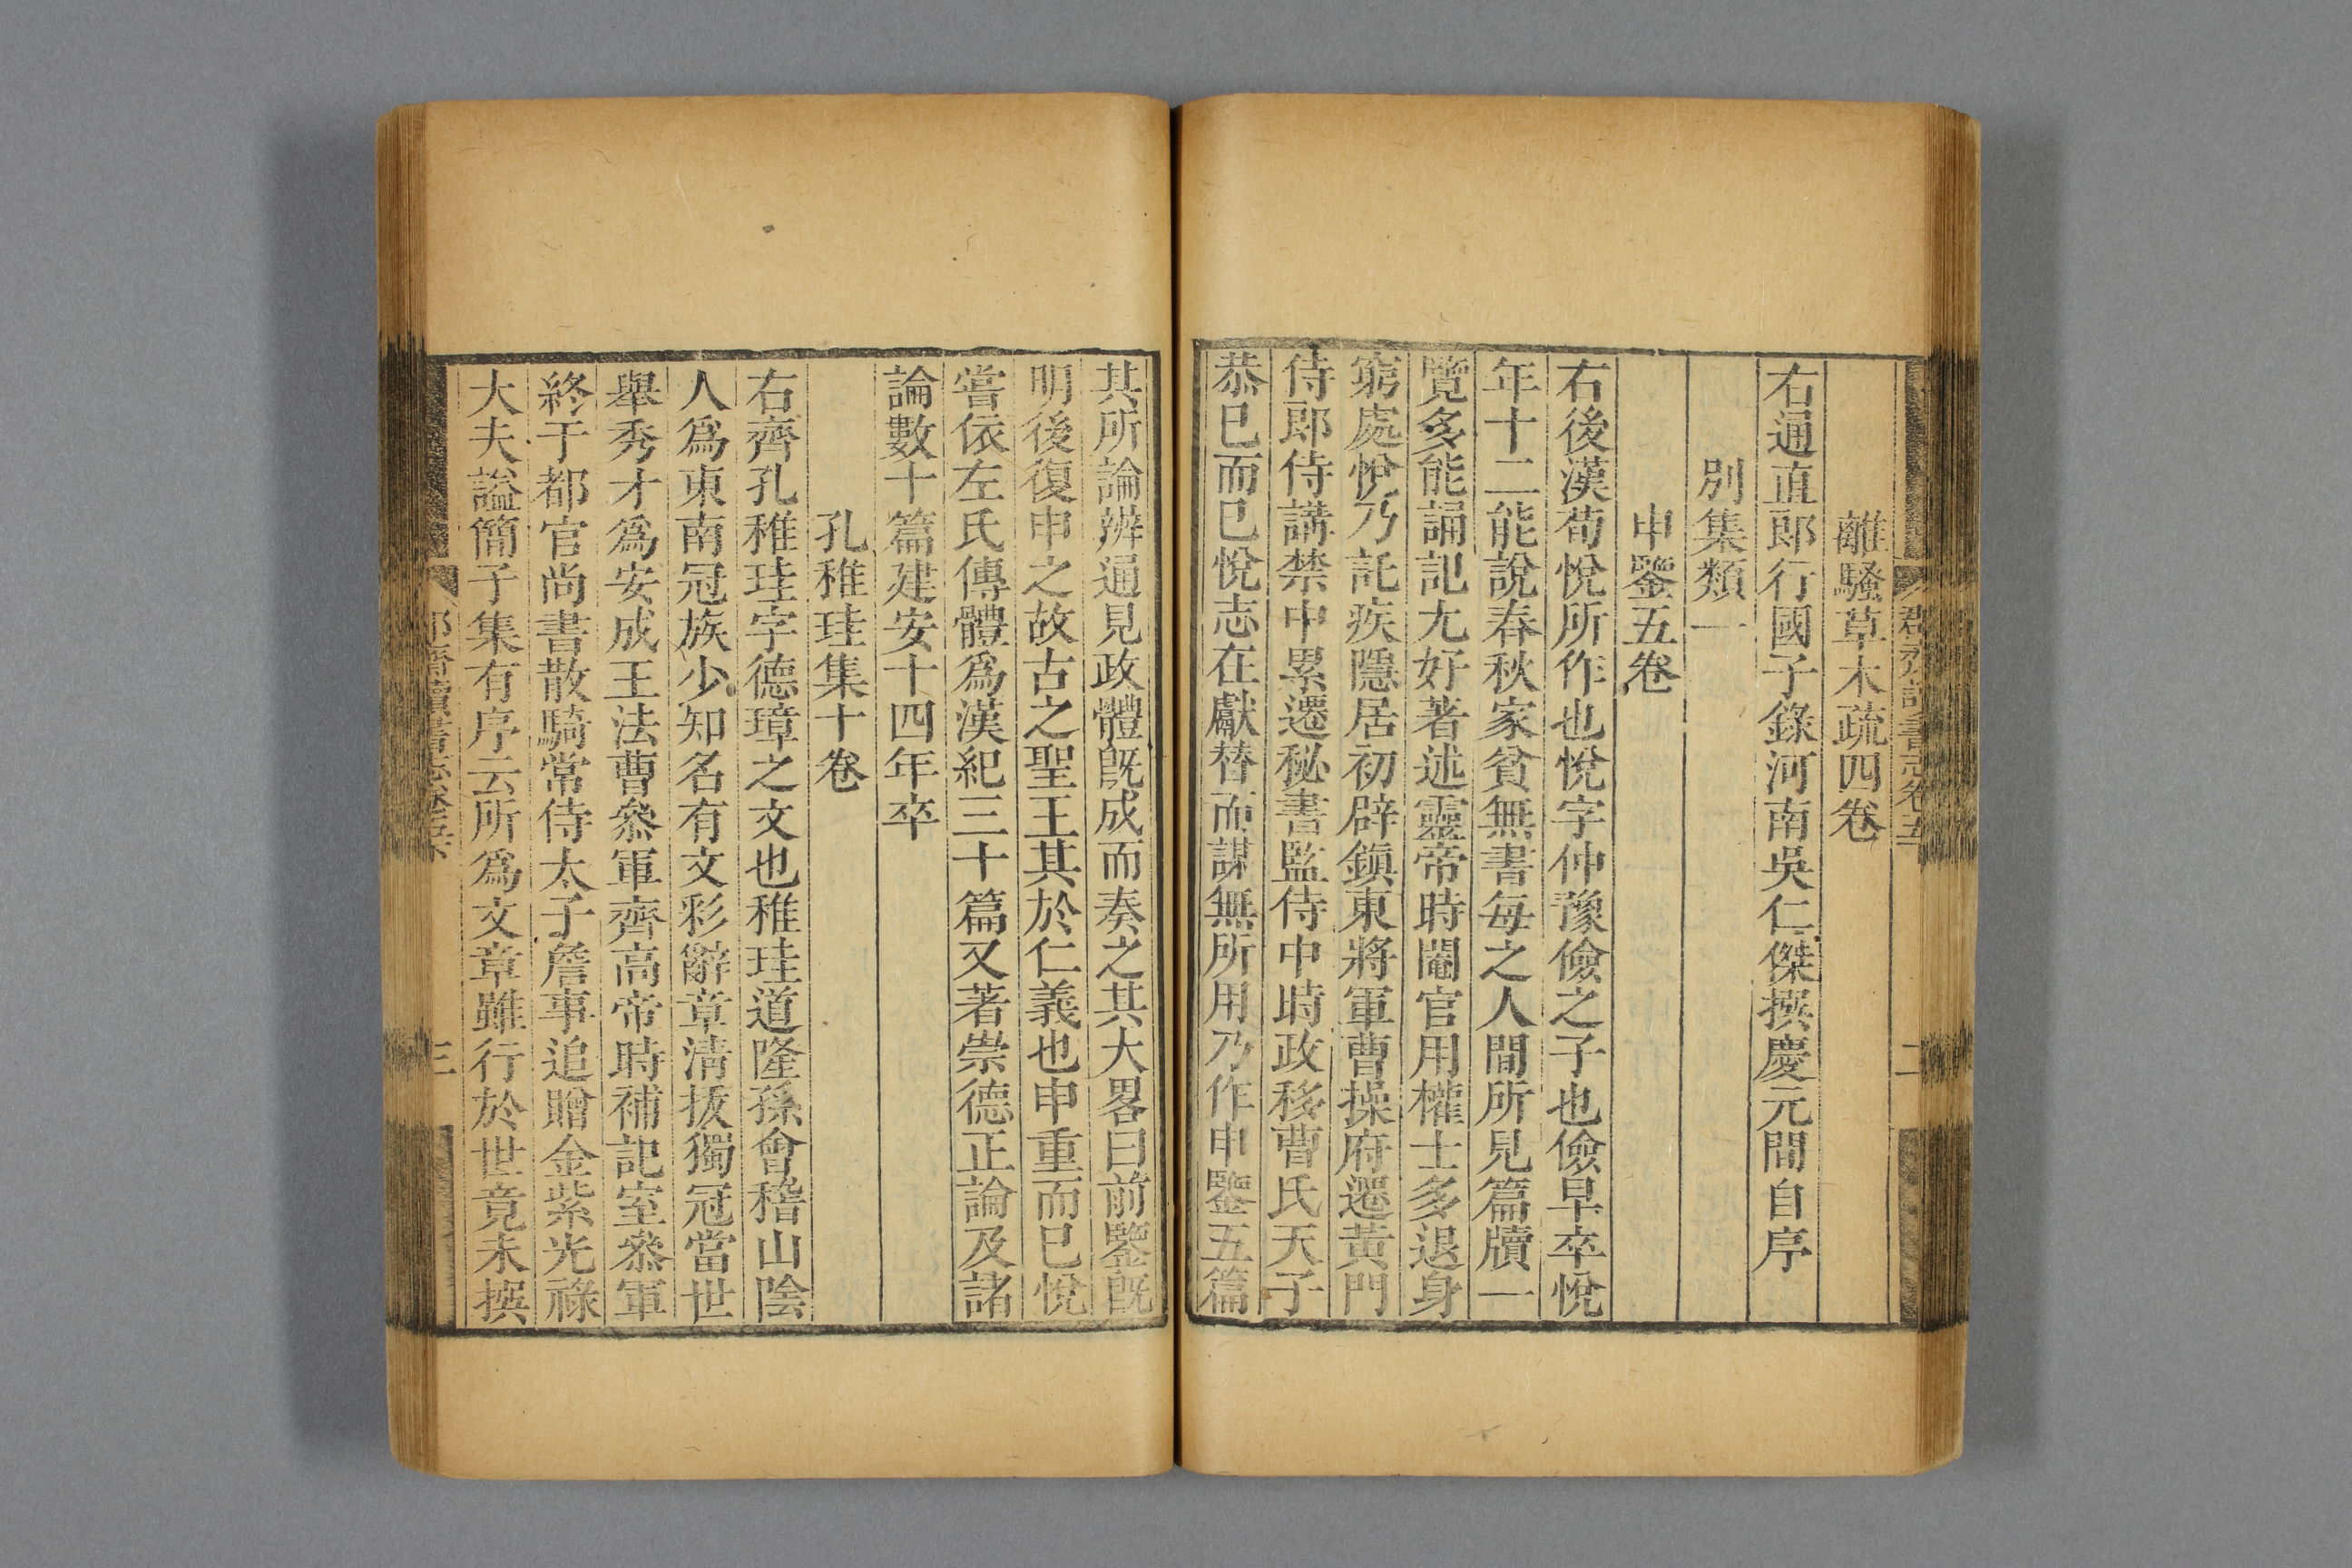 離騷草木疏四卷
右通直郎行國子錄河南吳仁傑撰慶元間自序
別集類一
申鑒五卷
右後漢荀悅所作也悅字仲豫儉之子也儉早卒悅
年十二能說春秋家貧無書每之人間所見篇牘一
覽多能誦記尤好著述靈帝時閹官用權士多退身
窮處悅乃託疾隱居初辟鎭東將軍曹操府遷黃門
侍郎侍講禁中累遷秘書監侍中時政移曹氏天子
恭已而已悅志在獻替而謀無所用乃作申鑒五篇
其所論辨通見政體旣成而奏之其大畧曰前鑒旣
明後復申之故古之聖王其於仁義也申重而已悅
嘗依左氏傳體爲漢紀三十篇又著崇德正論及諸
論數十篇建安十四年卒
孔稚珪集十卷
右齊孔稚珪字德璋之文也稚珪道隆孫會稽山陰
人爲東南冠族少知名有文彩辭章淸拔獨冠當世
舉秀才爲安成王法曹叅軍齊高帝時補記室叅軍
終于都官尚書散騎常侍太子詹事追贈金紫光祿
大夫謚簡子集有序云所爲文章雖行於世竟未撰
三